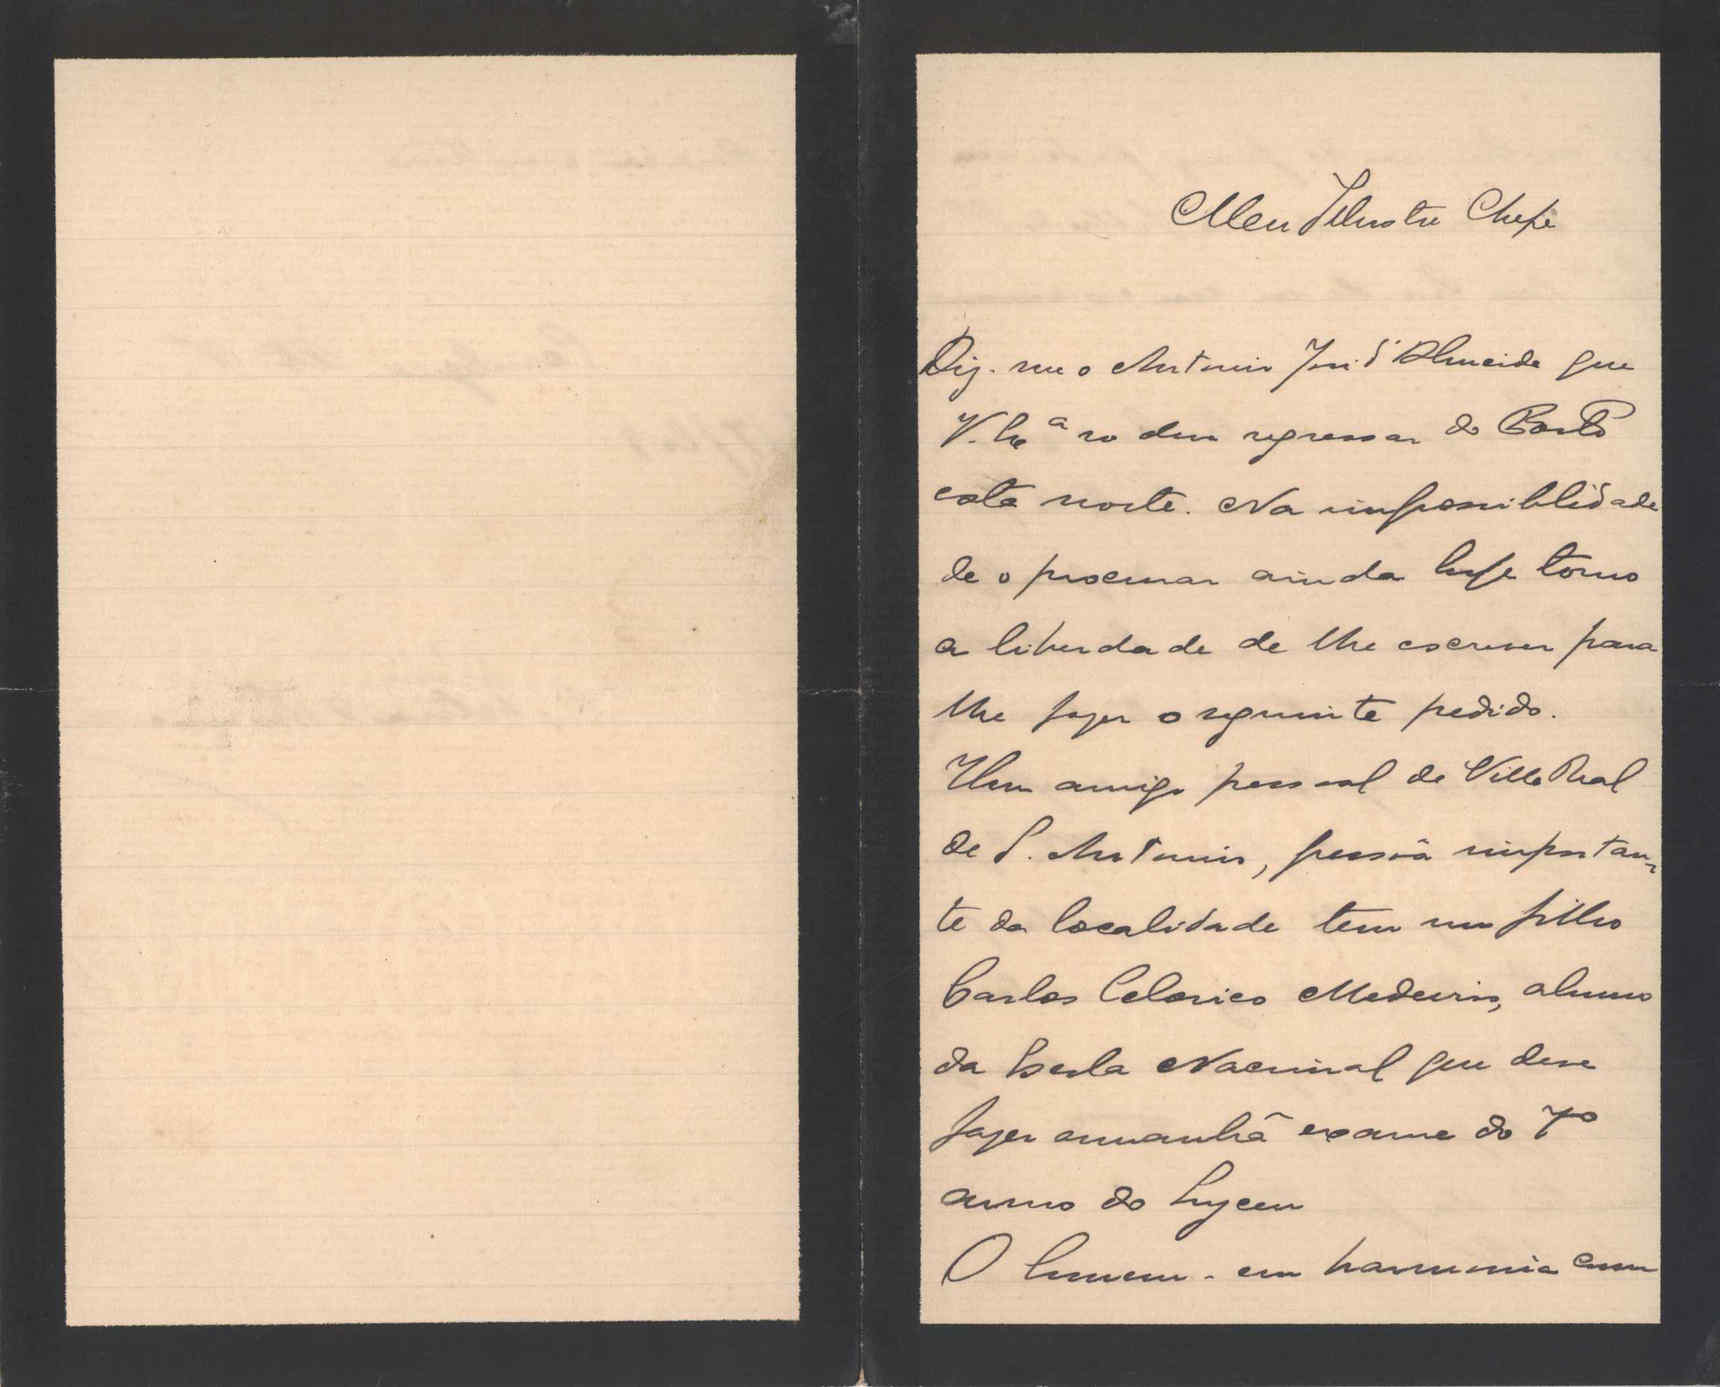 Meu Illustre Chefe
Diz-me o Antonio José d'Almeida que
V. Ex.ª só deve regressar do Porto
esta noite. Na impossiblidade
de o procurar ainda hoje tomo
a liberdade de lhe escrever para
lhe fazer o seguinte pedido.
Um amigo pessoal de Villa Real
de S. Antonio, pessoa importan-
te da localidade tem um filho
Carlos Celorico Medeiros, alumno
da Escola Nacional que deve
fazer amanhã exame do 7º
anno do Lyceu
O homem - em harmonia com